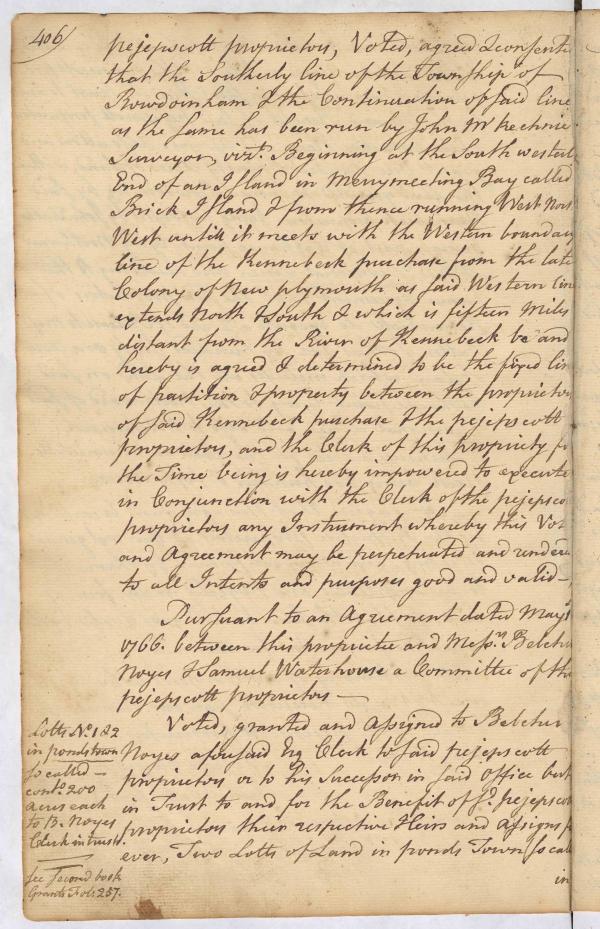 406
pejepscott proprietors, Voted, agreed & consente
that the Southerly line of the Township of
Bowdoinham & the Continuation of said line
as the same has been run by John McKechnie
Surveyor, vizt. Beginning at the South westerl
End of an Island in Merrymeeting Bay called
Brick Island & from thence running West Nort
West untill it meets with the Western boundary
line of the Kennebeck purchase from the late
Colony of New plymouth as said Western line
extends North & South & which is fifteen Miles
distant from the River of Kennebeck be and
hereby is agreed & determined to be the fixed lin
of partition & property between the proprietors
of said Kennebeck purchase & the pejepscott
proprietors, and the Clerk of this propriety fo
the Time being is hereby impowered to execute
in Conjunction with the Clerk of the pejepsco
proprietors any Instrument whereby this Vot
and Agreement may be perpetuated and rendere
to all Intents and purposes good and valid—
Pursuant to an Agreement dated May
1766. between this proprietee and Messrs. Belcher
Noyes & Samuel Waterhouse a Committee of the
pejepscott proprietors—
Voted, granted and Assigned to Belcher
Noyes aforesaid Esq Clerk to said pejepscott
proprietors or to his Successor in said office but
in Trust to and for the Benefit of sd. pejepscot
proprietors their respective Heirs and assigns fo
ever, Two Lotts of Land in ponds Town so call
in
Lotts No. 1 & 2
in pondstown
so called—
contg. 200
acres each
to B. Noyes
Clerk in trust.
See Second book
Grants Folo 257.